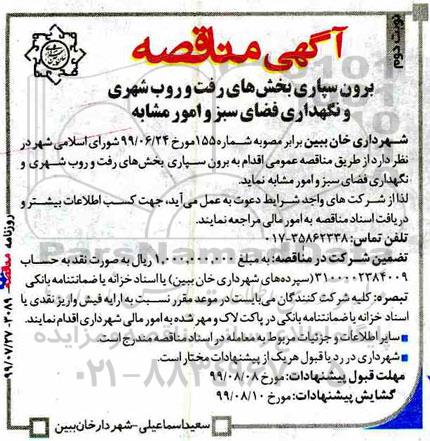 نوبت دوم
آگهی مناقصه
برون سپاری بخش‌های رفت و روب شهری
و نگهداری فضای سبز و امور مشابه
شهرداری خان ببین برابر مصوبه شماره ۱۵۵ مورخ ۹۹/۰۶/۲۴ شورای اسلامی شهر در
نظر دارد از طریق مناقصه عمومی اقدام به برون سپاری بخش‌های رفت و روب شهری و
نگهداری فضای سبز و امور مشابه نماید.
لذا از شرکت های واجد شرایط دعوت به عمل می‌آید، جهت کسب اطلاعات بیشتر و
دریافت اسناد مناقصه به امور مالی مراجعه نمایند.
تلفن تماس: ۳۵۸۶۲۳۳۸-۰۱۷
تضمین شرکت در مناقصه: به مبلغ ۱,۰۰۰,۰۰۰,۰۰۰ ریال به صورت نقد به حساب
۳۱۰۰۰۰۲۳۸۴۰۰۹ (سپرده‌های شهرداری خان ببین) یا اسناد خزانه یا ضمانتنامه بانکی
تبصره: کلیه شرکت کنندگان می‌بایست در موعد مقرر نسبت به ارایه فیش واریز نقدی یا
اسناد خزانه یا ضمانتنامه بانکی در پاکت لاک و مهر شده به امور مالی شهرداری اقدام نمایند.
سایر اطلاعات و جزئیات مربوط به معامله در اسناد مناقصه مندرج است.
شهرداری در رد یا قبول هر یک از پیشنهادات مختار است.
مهلت قبول پیشنهادات: مورخ ۹۹/۰۸/۰۸
گشایش پیشنهادات: مورخ ۹۹/۰۸/۱۰
سعید اسماعیلی - شهردار خان ببین
روزنامه مناقصه ۳۰۸۹ - ۹۹/۰۷/۲۷
ParsNamadData
پایگاه اطلاع رسانی مناقصه مزایده
۰۲۱-۸۸۳۴۹۶۷۰-۵